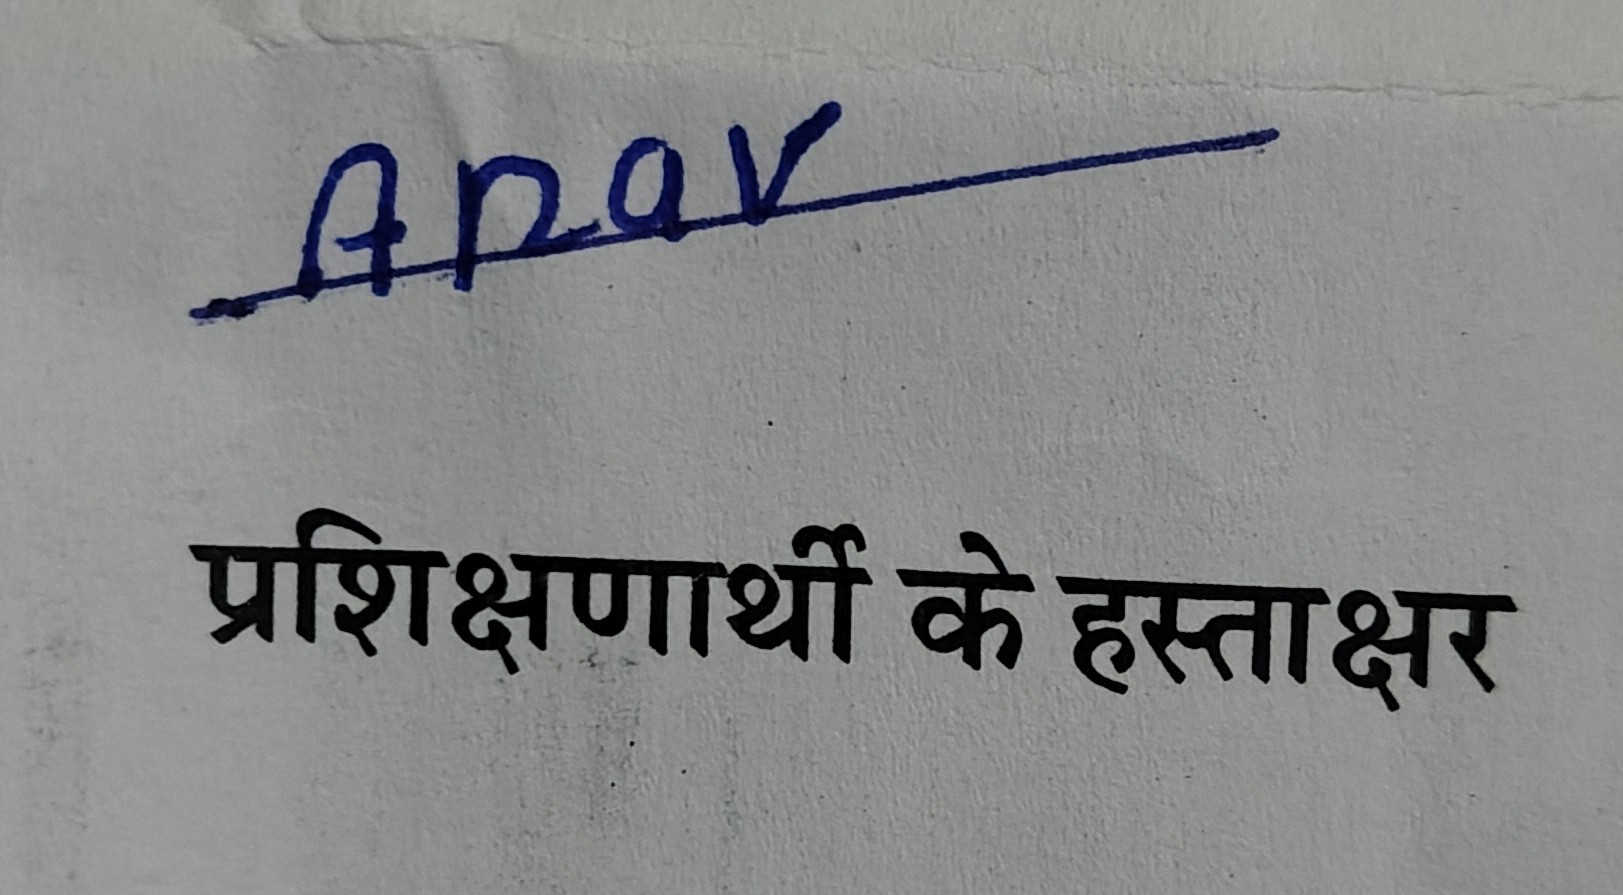 Arav
प्रशिक्षणार्थी के हस्ताक्षर